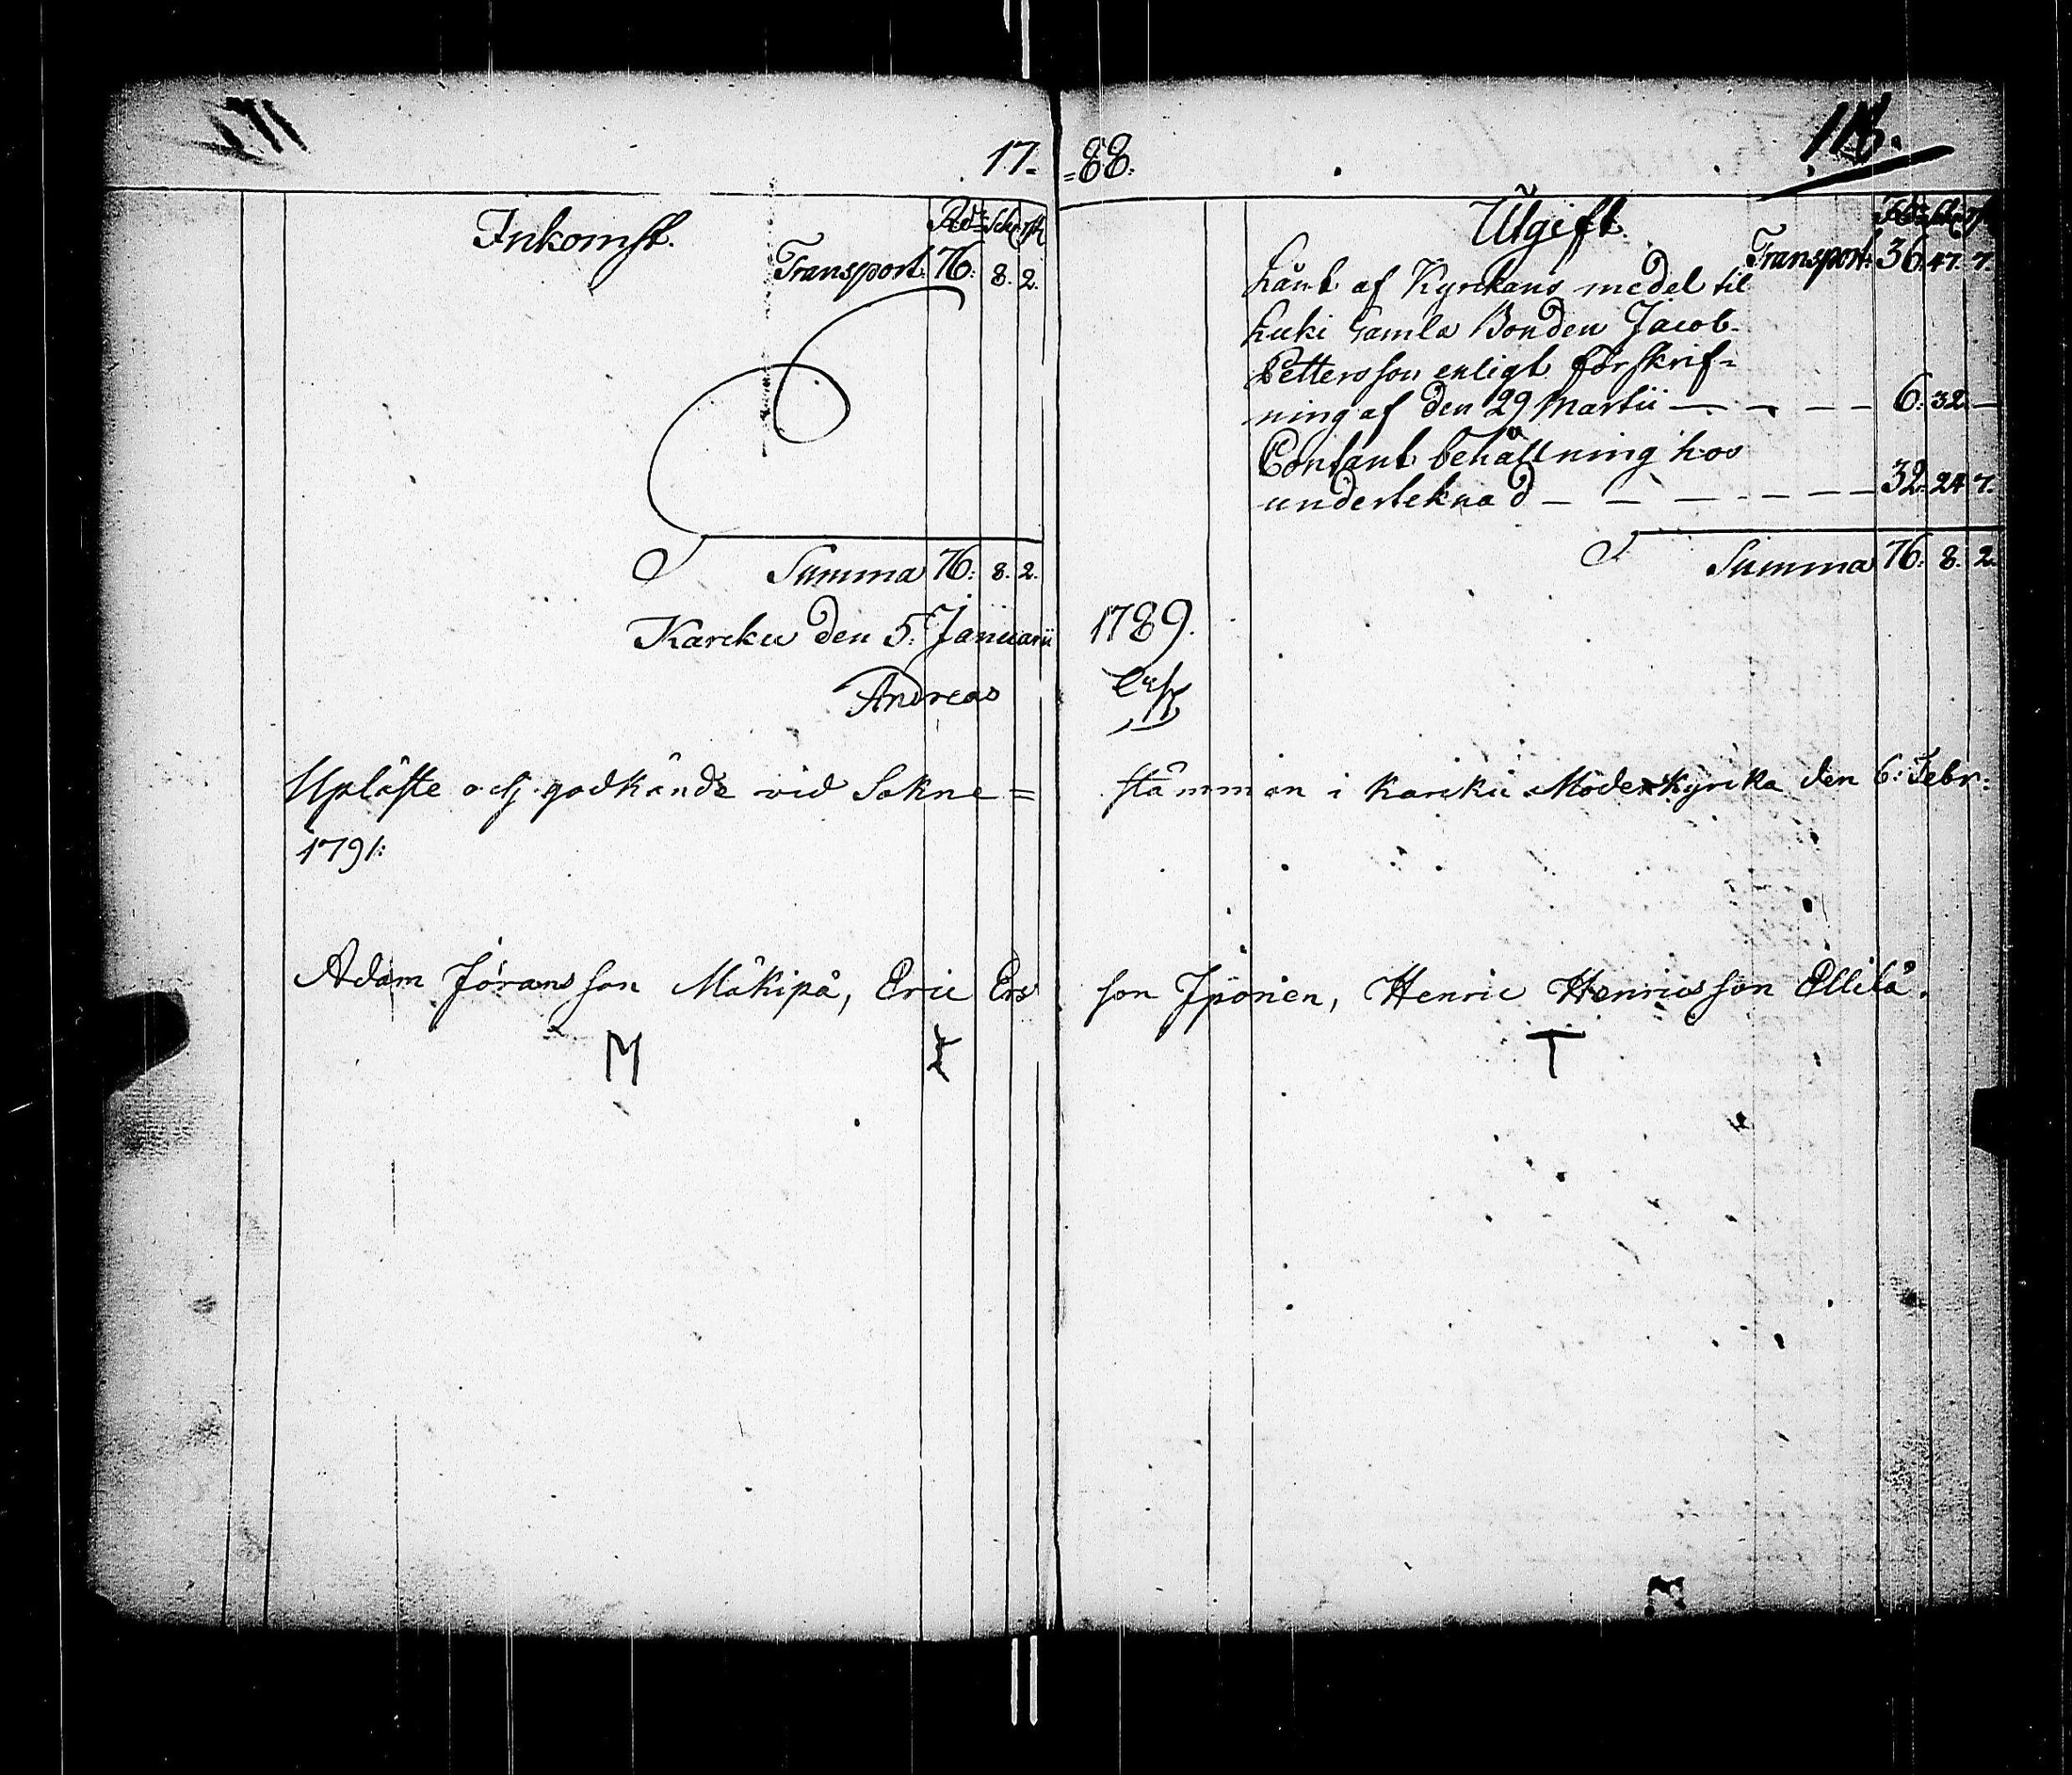 17= =88.
118.
Inkomst. Rdr Sch rst
Transport 76: 8. 2.
Summa 76: 8. 2.
Utgift.
Transport: 36. 47. 7.
Lånt af Kyrckans medel til
Luki gamla Bonden Jacob
Pettersson enligt förskrif=
ning af den 29 Martii — — — — 6: 32. —
Contant behållning hos
underteknad — — — — — — 32. 24 7.
Summa 76: 8. 2.
Karcku den 5. Januarii 1789.
Andreas
Upläste och godkände vid Sokne= stämman i Karcku Moderkyrcka den 6: Febr:
1791:
Adam Jöransson Mäkipä, Eric Ers son Iponen, Henric Henricsson Ellilä.
M T